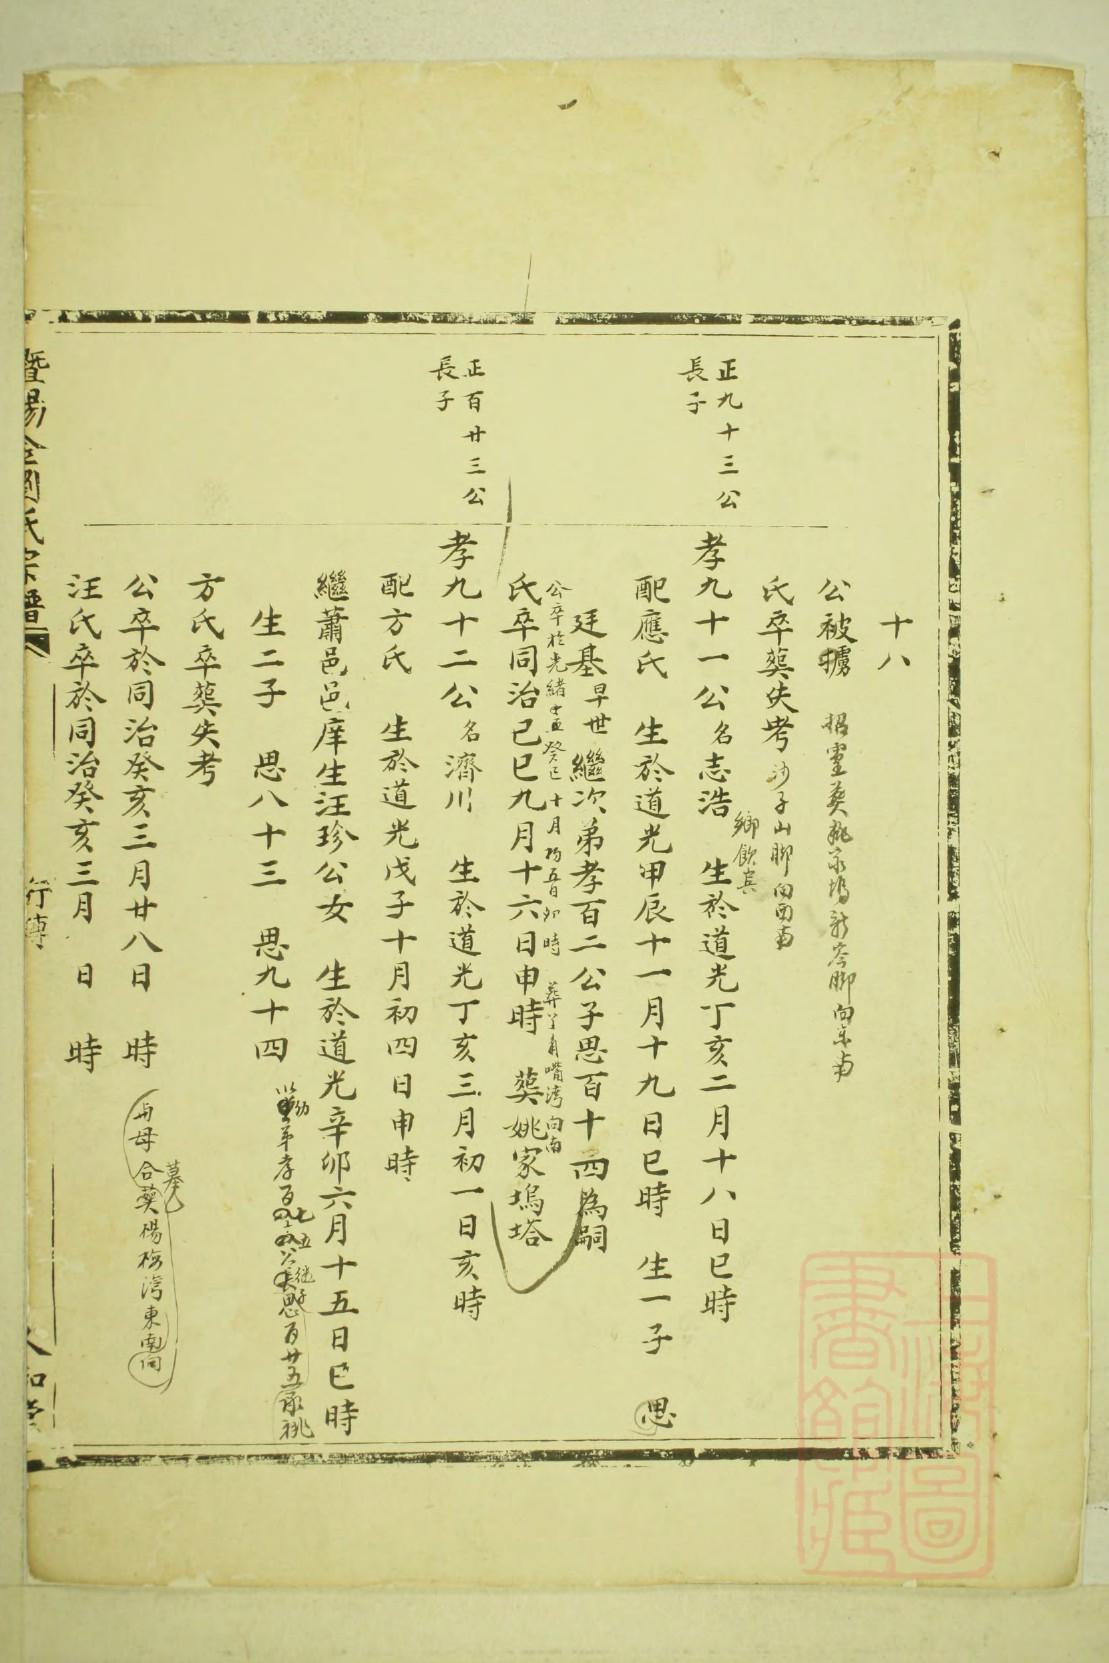 十八
公被擄
招靈葬姚家塢新茶脚向東南
氏卒葬失考
沙子山脚向西南
正九十三公
長子
孝九十一公名志浩 生於道光丁亥二月十八日巳時
鄉飲賓
配應氏 生於道光甲辰十一月十九日巳時 生一子 思
廷基早世 繼次弟孝百二公子思百十四為嗣
公卒於光緒十五癸巳十月初五日卯時 葬羊角嘴湾向南
氏卒同治己巳九月十六日申時 葬姚家塢塔
正百廿三公
長子
孝九十二公名濟川 生於道光丁亥三月初一日亥時
配方氏 生於道光戊子十月初四日申時
繼蕭邑邑庠生汪珍公女 生於道光辛卯六月十五日巳時
生二子 思八十三 思九十四
以幼弟孝百七五公繼子思百廿五承祧
方氏卒葬失考
公卒於同治癸亥三月廿八日 時
与母合葬楊梅湾東南向
墓
汪氏卒於同治癸亥三月 日 時
暨陽 劉氏宗譜
行傳
上海圖書館藏